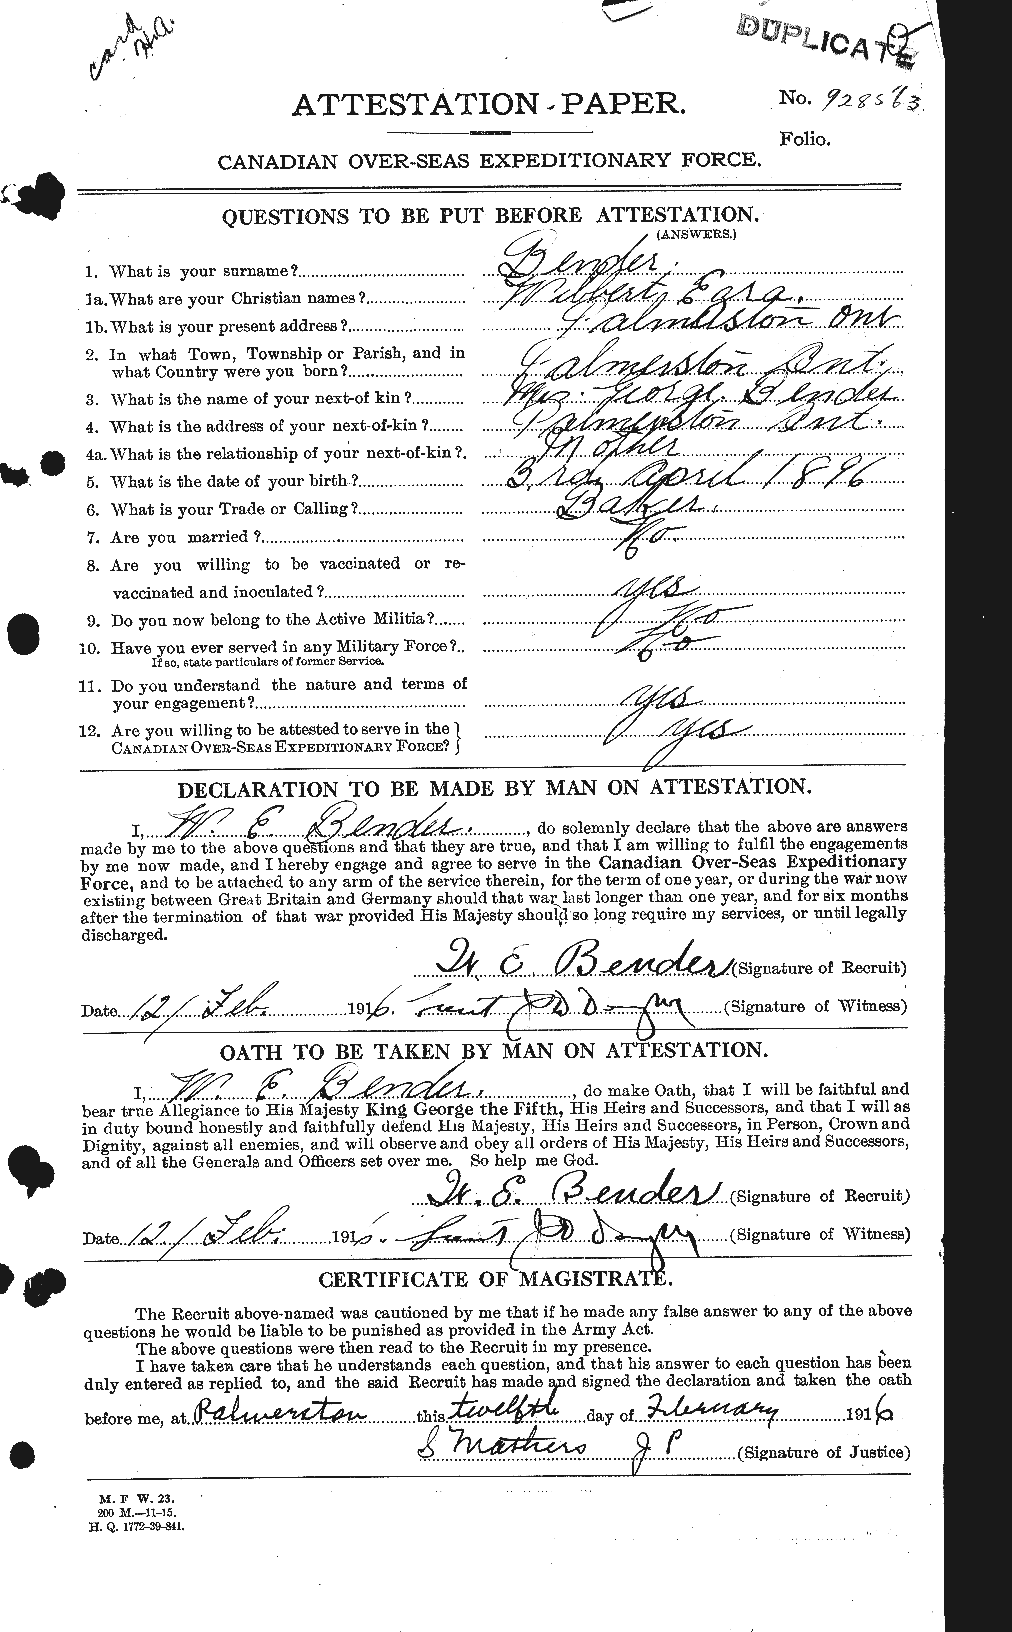 card
H.A.
DUPLICATE
ATTESTATION-PAPER.
No. 928563
Folio.
CANADIAN OVER-SEAS EXPEDITIONARY FORCE.
QUESTIONS TO BE PUT BEFORE ATTESTATION.
(ANSWERS.)
1. What is your surname? Bender.
1a. What are your Christian names? Wilbert, Ezra.
1b. What is your present address? Palmerston Ont
2. In what Town, Township or Parish, and in
what Country were you born? Palmerston Ont.
3. What is the name of your next-of kin? Mrs. George Bender
4. What is the address of your next-of-kin? Palmerston Ont.
4a. What is the relationship of your next-of-kin? Mother
5. What is the date of your birth? 3rd April 1896
6. What is your Trade or Calling? Baker.
7. Are you married? No.
8. Are you willing to be vaccinated or re-
vaccinated and inoculated? yes
9. Do you now belong to the Active Militia? No
10. Have you ever served in any Military Force? No
If so, state particulars of former Service.
11. Do you understand the nature and terms of
your engagement? yes
12. Are you willing to be attested to serve in the
CANADIAN OVER-SEAS EXPEDITIONARY FORCE? yes
DECLARATION TO BE MADE BY MAN ON ATTESTATION.
I, W. E. Bender. , do solemnly declare that the above are answers
made by me to the above questions and that they are true, and that I am willing to fulfil the engagements
by me now made, and I hereby engage and agree to serve in the Canadian Over-Seas Expeditionary
Force, and to be attached to any arm of the service therein, for the term of one year, or during the war now
existing between Great Britain and Germany should that war last longer than one year, and for six months
after the termination of that war provided His Majesty should so long require my services, or until legally
discharged.
W. E Bender (Signature of Recruit)
Date 12/ Feb. 1916. (Signature of Witness)
OATH TO BE TAKEN BY MAN ON ATTESTATION.
I, W. E. Bender. , do make Oath, that I will be faithful and
bear true Allegiance to His Majesty King George the Fifth, His Heirs and Successors, and that I will as
in duty bound honestly and faithfully defend His Majesty, His Heirs and Successors, in Person, Crown and
Dignity, against all enemies, and will observe and obey all orders of His Majesty, His Heirs and Successors,
and of all the Generals and Officers set over me. So help me God.
W. E. Bender (Signature of Recruit)
Date 12/ Feb. 1916. (Signature of Witness)
CERTIFICATE OF MAGISTRATE.
The Recruit above-named was cautioned by me that if he made any false answer to any of the above
questions he would be liable to be punished as provided in the Army Act.
The above questions were then read to the Recruit in my presence.
I have taken care that he understands each question, and that his answer to each question has been
duly entered as replied to, and the said Recruit has made and signed the declaration and taken the oath
before me, at Palmerston this twelfth day of February 1916
S Mathers J P (Signature of Justice)
M. F W. 23.
200 M.—11-15.
H. Q. 1772-39-841.